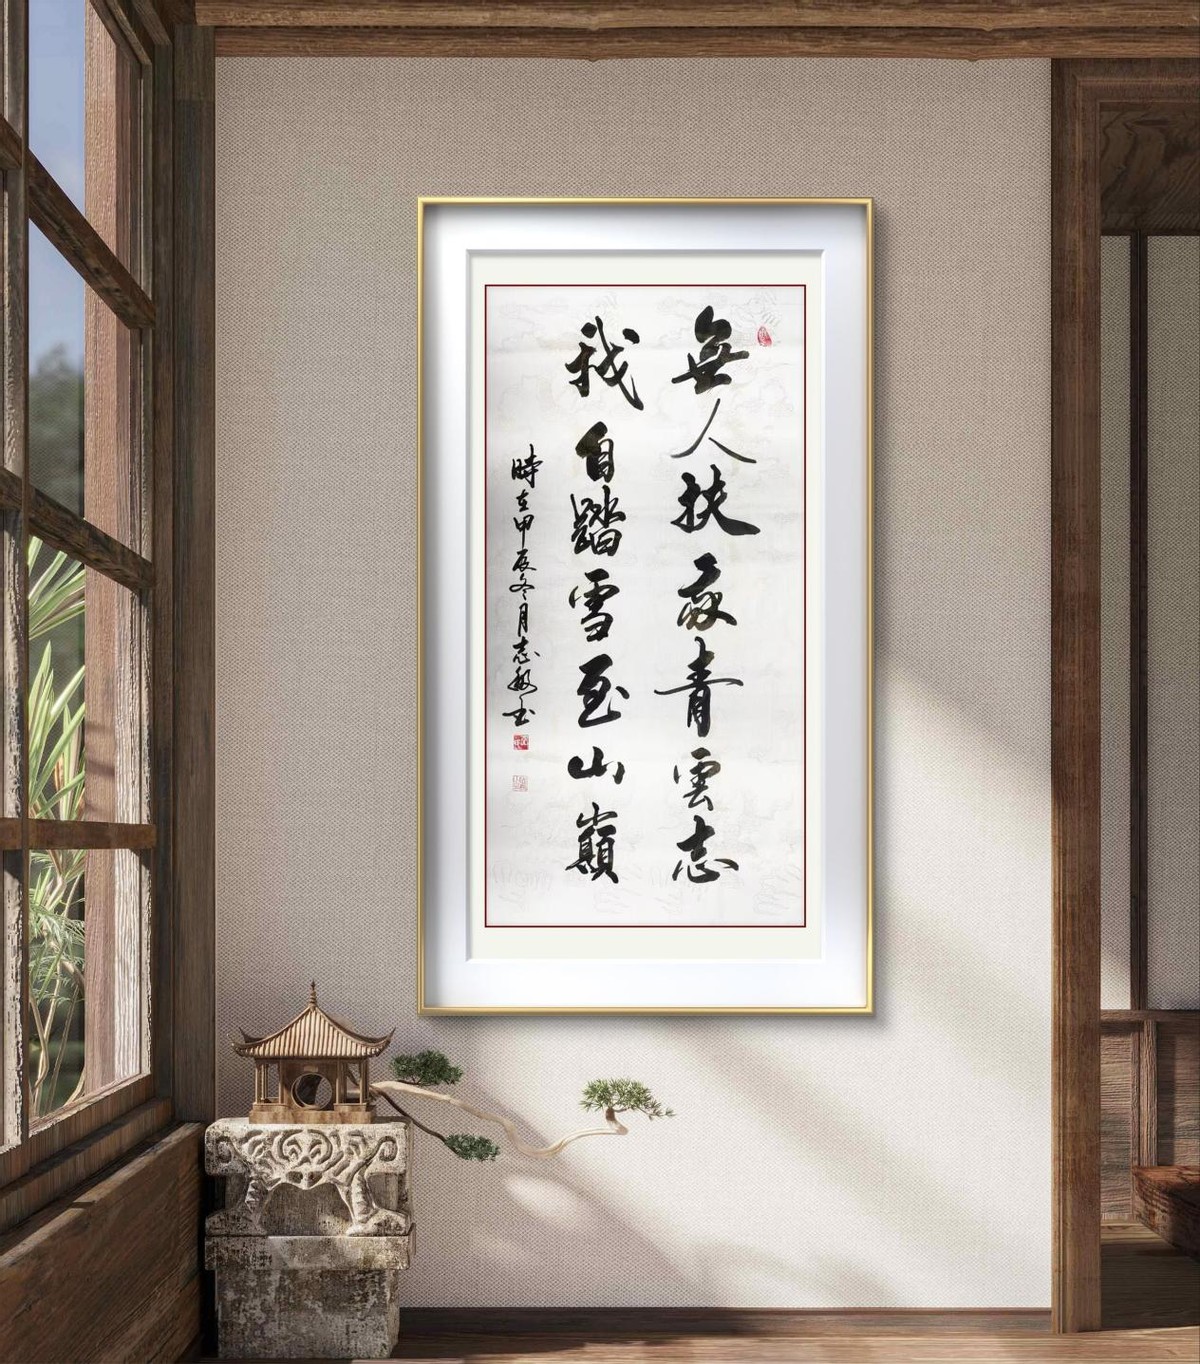 無人扶我青雲志
我自踏雪至山巔
時在甲辰冬月志敏書